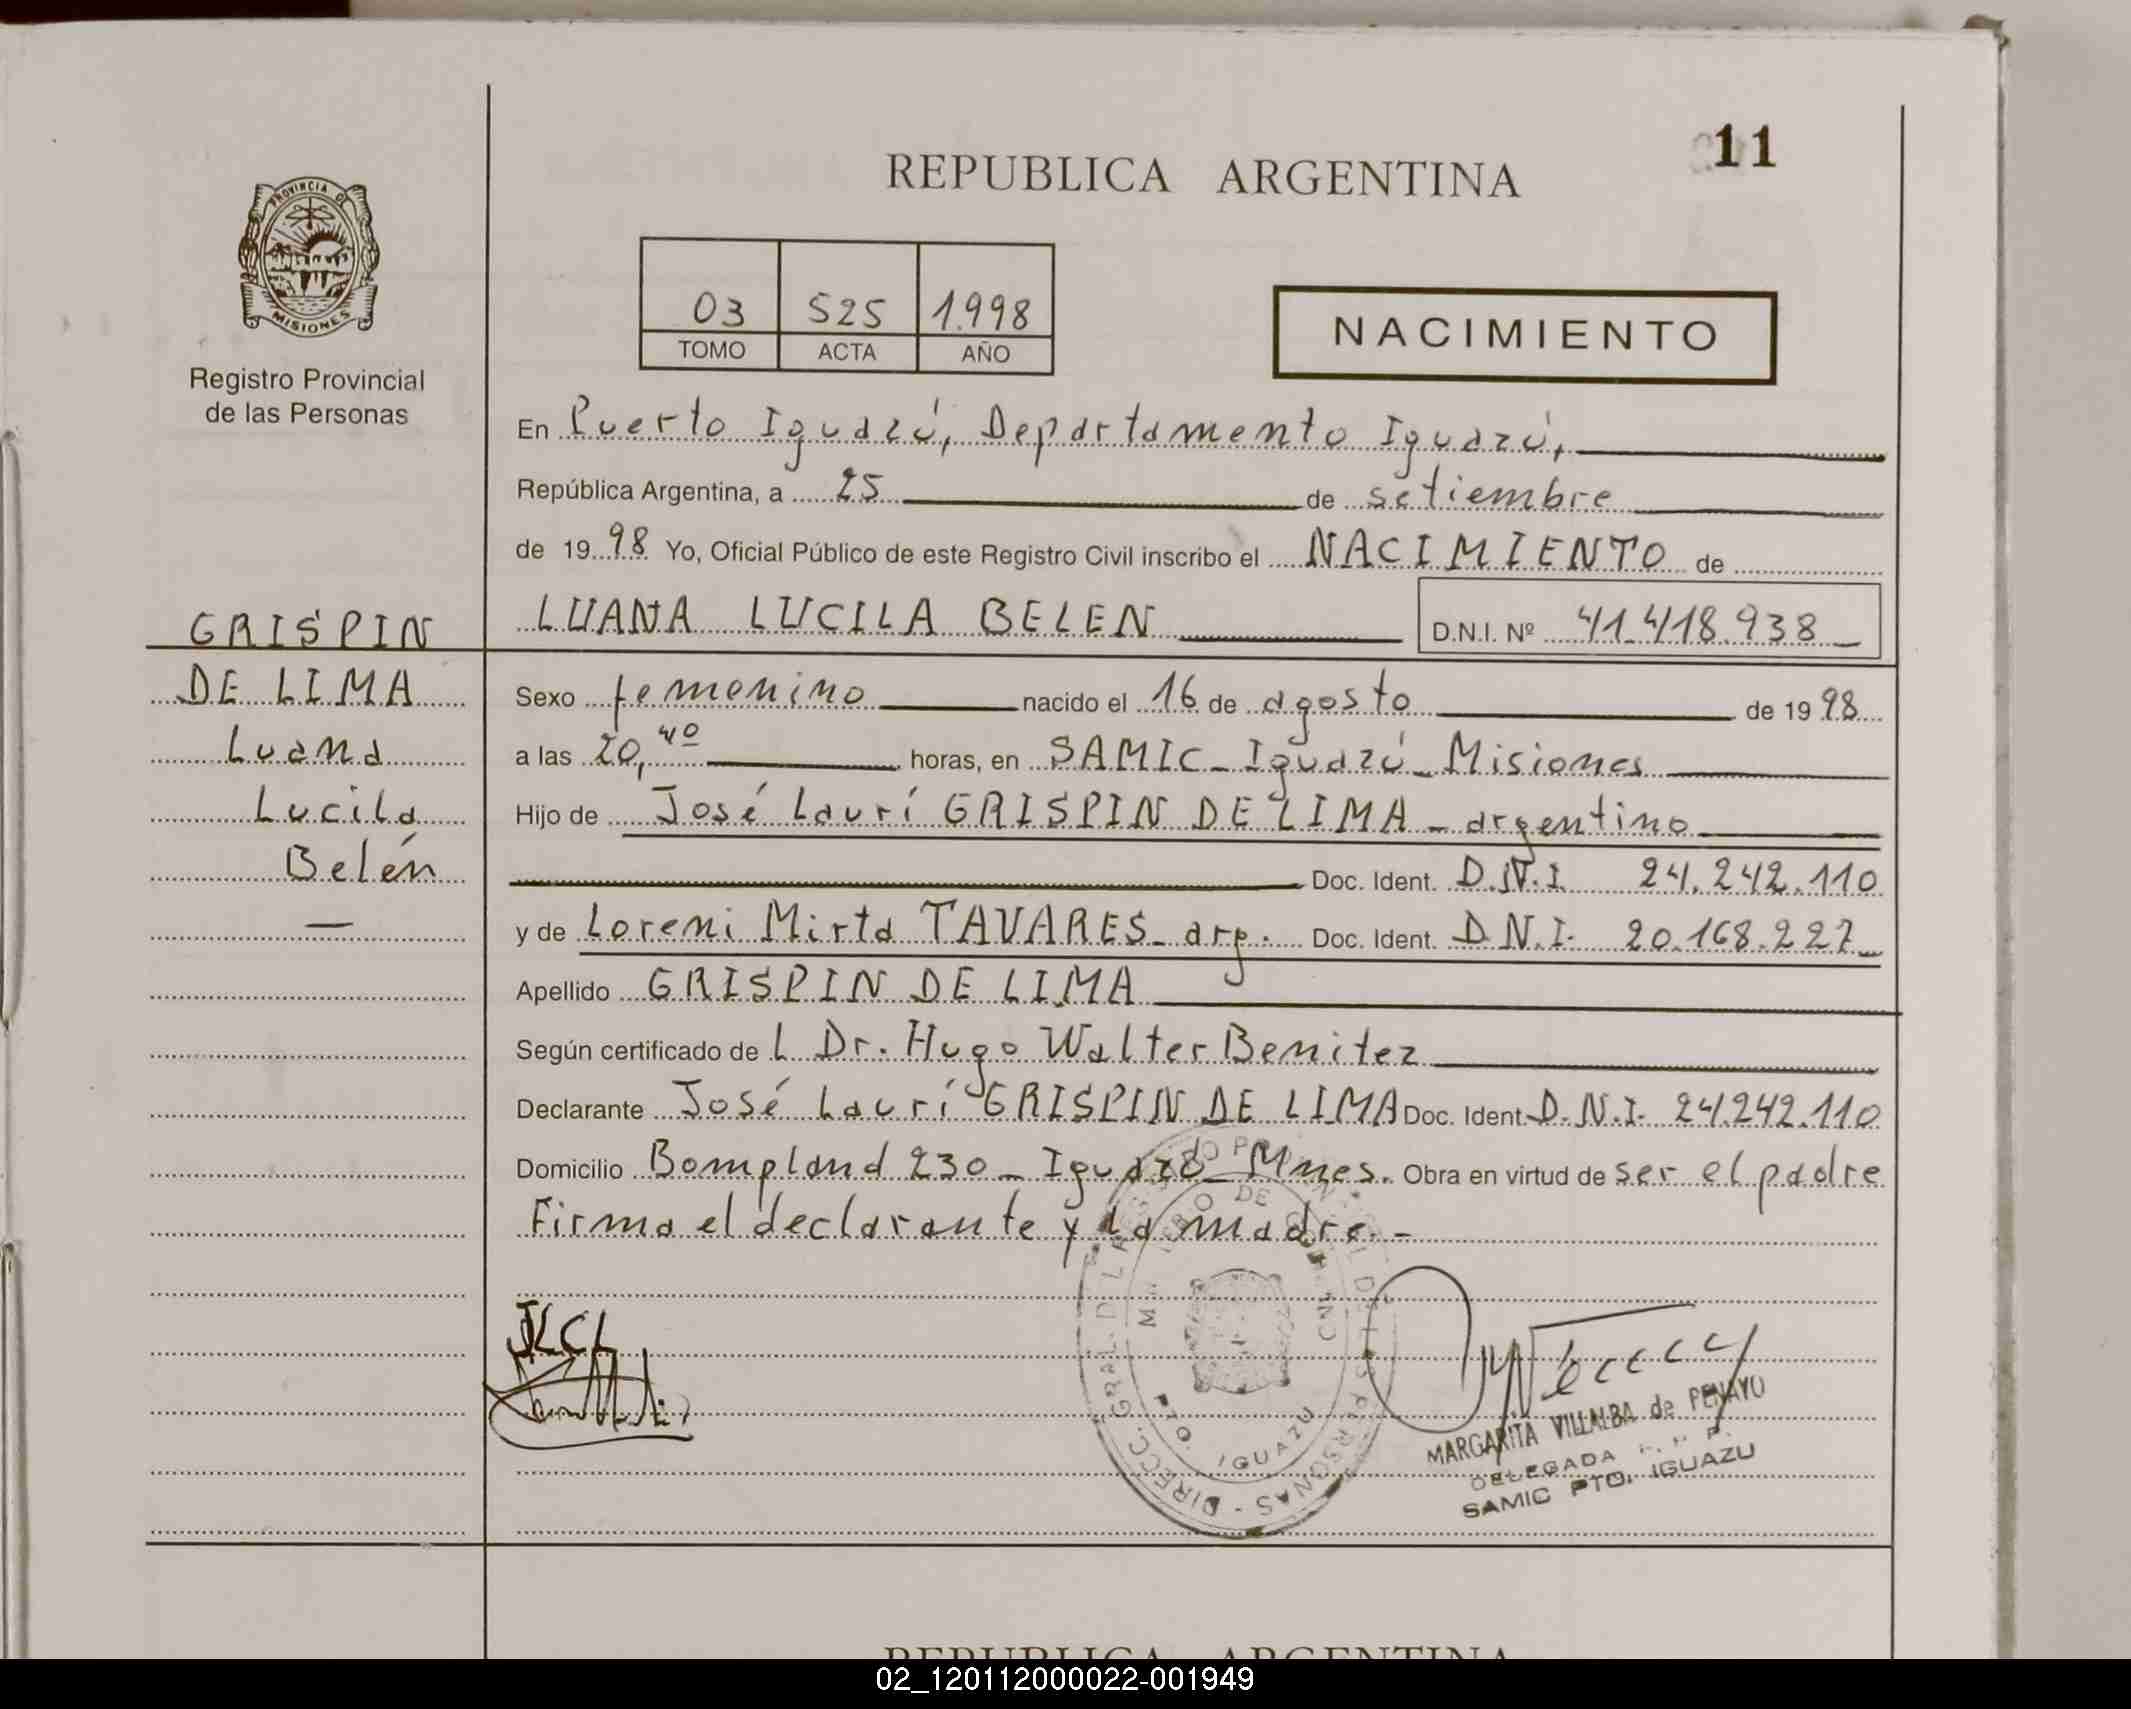 11
REPUBLICA ARGENTINA
PROVINCIA DE
MISIONES
Registro Provincial
de las Personas
03 525 1.998
TOMO ACTA AÑO
NACIMIENTO
En Puerto Iguazú, Departamento Iguazú,
República Argentina, a 25 de setiembre
de 1998 Yo, Oficial Público de este Registro Civil inscribo el NACIMIENTO de
LUANA LUCILA BELEN D.N.I. Nº 41.418.938
GRISPIN
DE LIMA
Luana
Lucila
Belén
Sexo femenino nacido el 16 de agosto de 1998
a las 20,40 horas, en SAMIC - Iguazú - Misiones
Hijo de José Laurí GRISPIN DE LIMA - argentino
Doc. Ident. D.N.I. 24.242.110
y de Loreni Mirta TAVARES - arg. Doc. Ident. D.N.I. 20.168.227
Apellido GRISPIN DE LIMA
Según certificado de L Dr. Hugo Walter Benitez
Declarante José Laurí GRISPIN DE LIMA Doc. Ident. D.N.I. 24.242.110
Domicilio Bompland 230 - Iguazú - Mnes. Obra en virtud de ser el padre
Firma el declarante y la madre.-
PTO. IGUAZU
MARGARITA VILLALBA de PENAYO
DELEGADA
SAMIC PTO. IGUAZU
REPUBLICA ARGENTINA
02_120112000022-001949